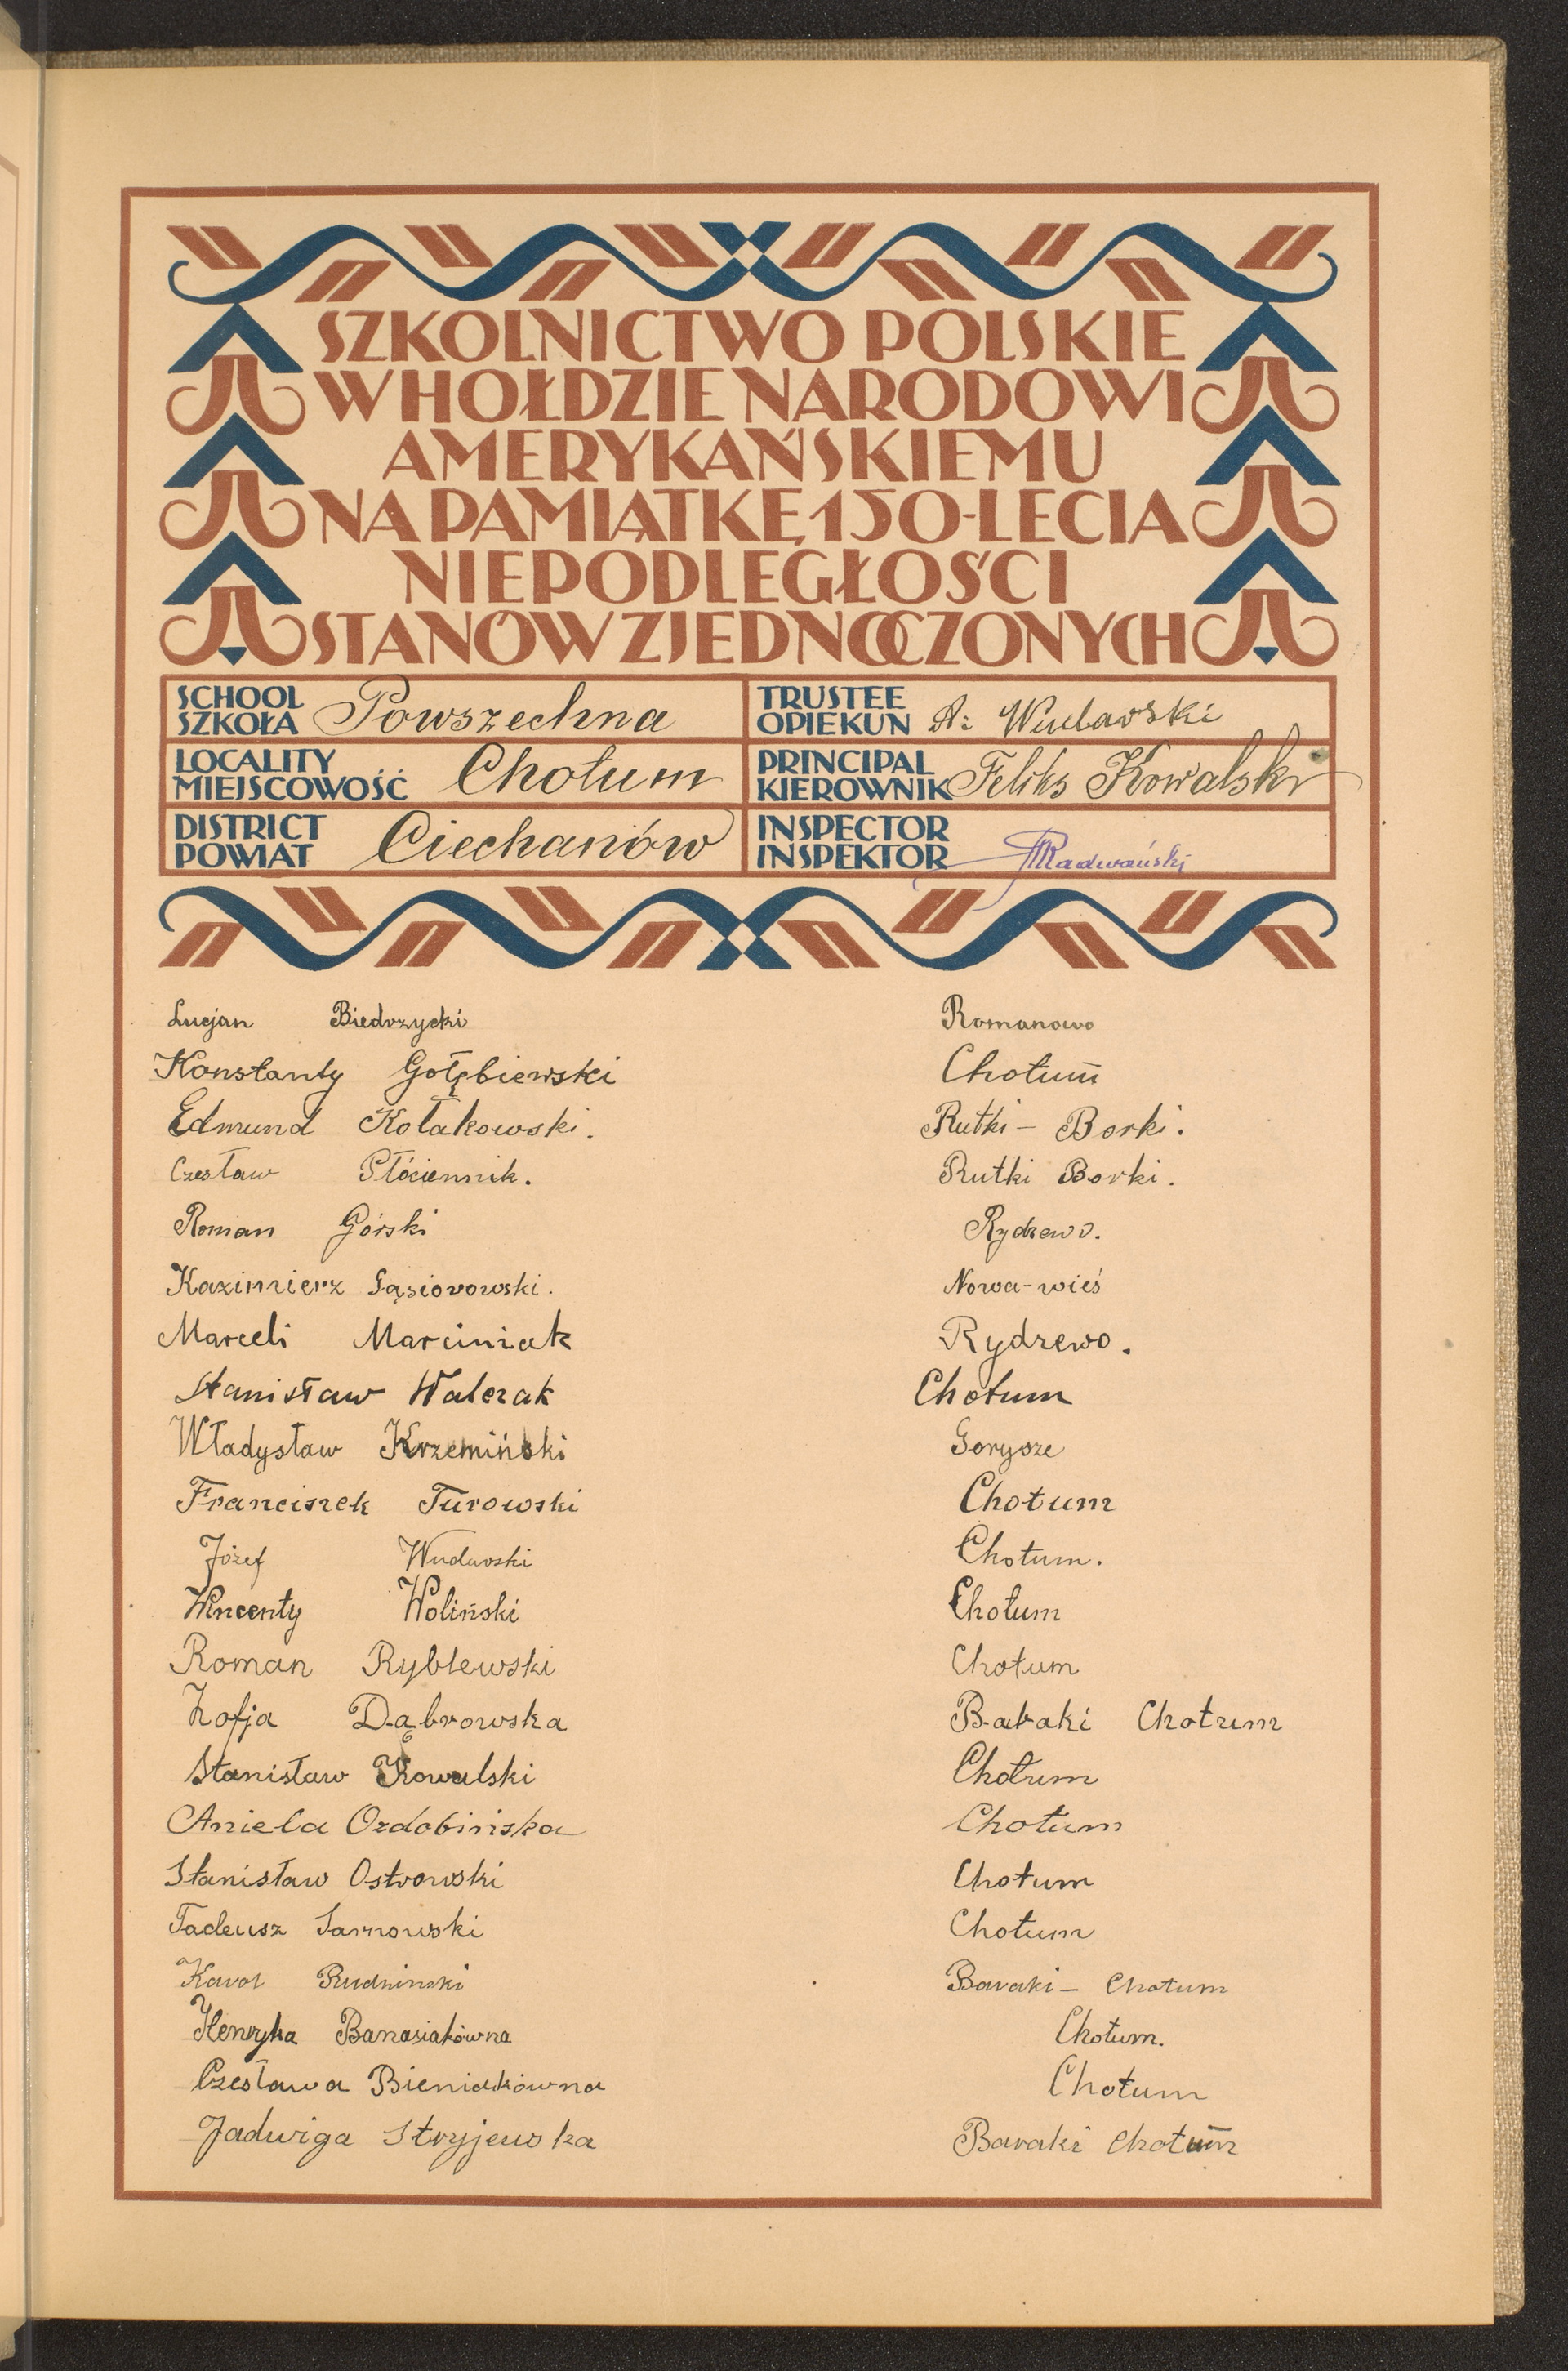 SZKOLNICTWO POLSKIE
W HOŁDZIE NARODOWI
AMERYKAŃSKIEMU
NA PAMIĄTKĘ 150-LECIA
NIEPODLEGŁOŚCI
STANÓW ZJEDNOCZONYCH
SCHOOL SZKOŁA Powszechna TRUSTEE OPIEKUN A:
LOCALITY MIEJSCOWOŚĆ Chotum PRINCIPAL KIEROWNIK Feliks Kowalski
DISTRICT POWIAT Ciechanów INSPECTOR INSPEKTOR Radwański
Lucjan Biedrzycki Romanowo
Konstanty Gołębiewski Chotum
Edmund Kołakowski. Rutki - Borki.
Czesław Płóciennik. Rutki Borki.
Roman Górski Rydzewo.
Kazimierz Gąsiorowski. Nowa-wieś
Marceli Marciniak Rydzewo.
Stanisław Walczak Chotum
Władysław Krzemiński Gorysze
Franciszek Turowski Chotum
Józef Chotum.
Wincenty Woliński Chotum
Roman Ryblewski Chotum
Zofja Dąbrowska Baraki Chotum
Stanisław Kowalski Chotum
Aniela Ozdobińska Chotum
Stanisław Ostrowski Chotum
Tadeusz Sarnowski Chotum
Karol Rudninski Baraki - Chotum
Henryka Banasiakówna Chotum.
Czesława Bieniakówna Chotum
Jadwiga Stryjewska Baraki Chotum